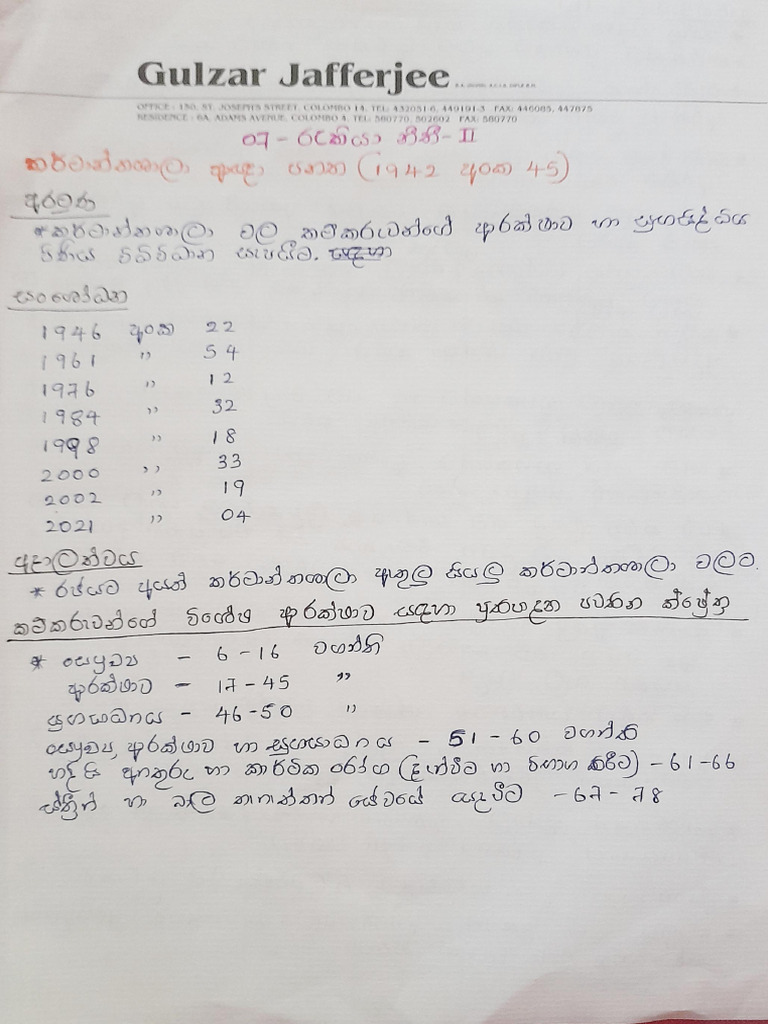 Gulzar Jafferjee
OFFICE : 150, ST. JOSEPH'S STREET, COLOMBO 14. TEL: 432051-6, 449191-3 FAX: 446085, 447875
RESIDENCE : 8A, ADAMS AVENUE, COLOMBO 4. TEL: 580770, 502602 FAX: 580770
07 - රැකියා නීති - II
කර්මාන්තශාලා ආඥා පනත (1942 අංක 45)
අරමුණ
* කර්මාන්තශාලා වල කම්කරුවන්ගේ ආරක්ෂාව හා සුභසිද්ධිය
පිණිස විධිවිධාන සැපයීම. සඳහා
සංශෝධන
1946 අංක 22
1961 ,, 54
1976 ,, 12
1984 ,, 32
1998 ,, 18
2000 ,, 33
2002 ,, 19
2021 ,, 04
අදාලත්වය
* රජයට අයත් කර්මාන්තශාලා ඇතුලු සියලු කර්මාන්තශාලා වලට.
කම්කරුවන්ගේ විශේෂ ආරක්ෂාව සඳහා ප්‍රතිපාදන පවතින ක්ෂේත්‍ර
* සෞඛ්‍ය - 6 - 16 වගන්ති
ආරක්ෂාව - 17 - 45 ,,
සුභසාධනය - 46 - 50 ,,
සෞඛ්‍ය, ආරක්ෂාව හා සුභසාධනය - 51 - 60 වගන්ති
හදිසි අනතුරු හා කාර්මික රෝග (දැන්වීම හා විභාග කිරීම) - 61 - 66
ස්ත්‍රීන් හා බාල තැනැත්තන් සේවයේ යෙදවීම - 67 - 78